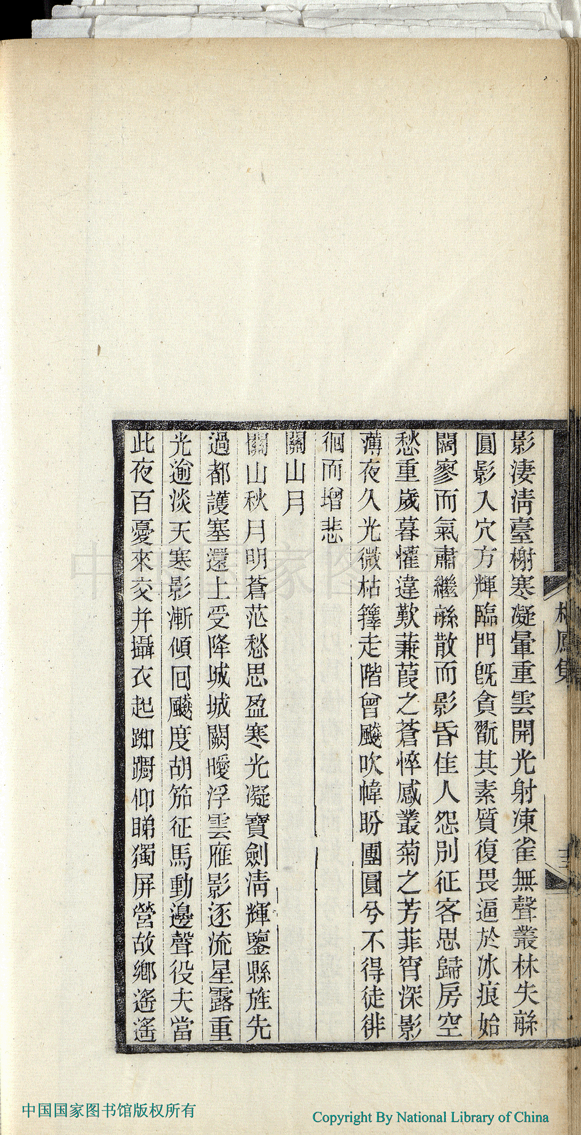 影淒清臺榭寒凝暈重雲開光射凍雀無聲叢林失緜
圓影入穴方輝臨門旣貪翫其素質復畏逼於冰痕始
闊寥而氣肅繼緜散而影昏佳人怨別征客思歸房空
愁重歲暮懽違歎蒹葭之蒼悴感叢菊之芳菲宵深影
薄夜久光微枯籜走階曾飈吹幃盼團圓兮不得徒徘
徊而增悲
關山月
關山秋月明蒼茫愁思盈寒光凝寶劍淸輝鑒縣旌先
過都護塞還上受降城城闕曖浮雲雁影逐流星露重
光逾淡天寒影漸傾回飈度胡笳征馬動邊聲役夫當
此夜百憂來交并攝衣起踟躕仰睇獨屏營故鄉遙遙
集
中国国家图书馆版权所有
Copyright By National Library of China